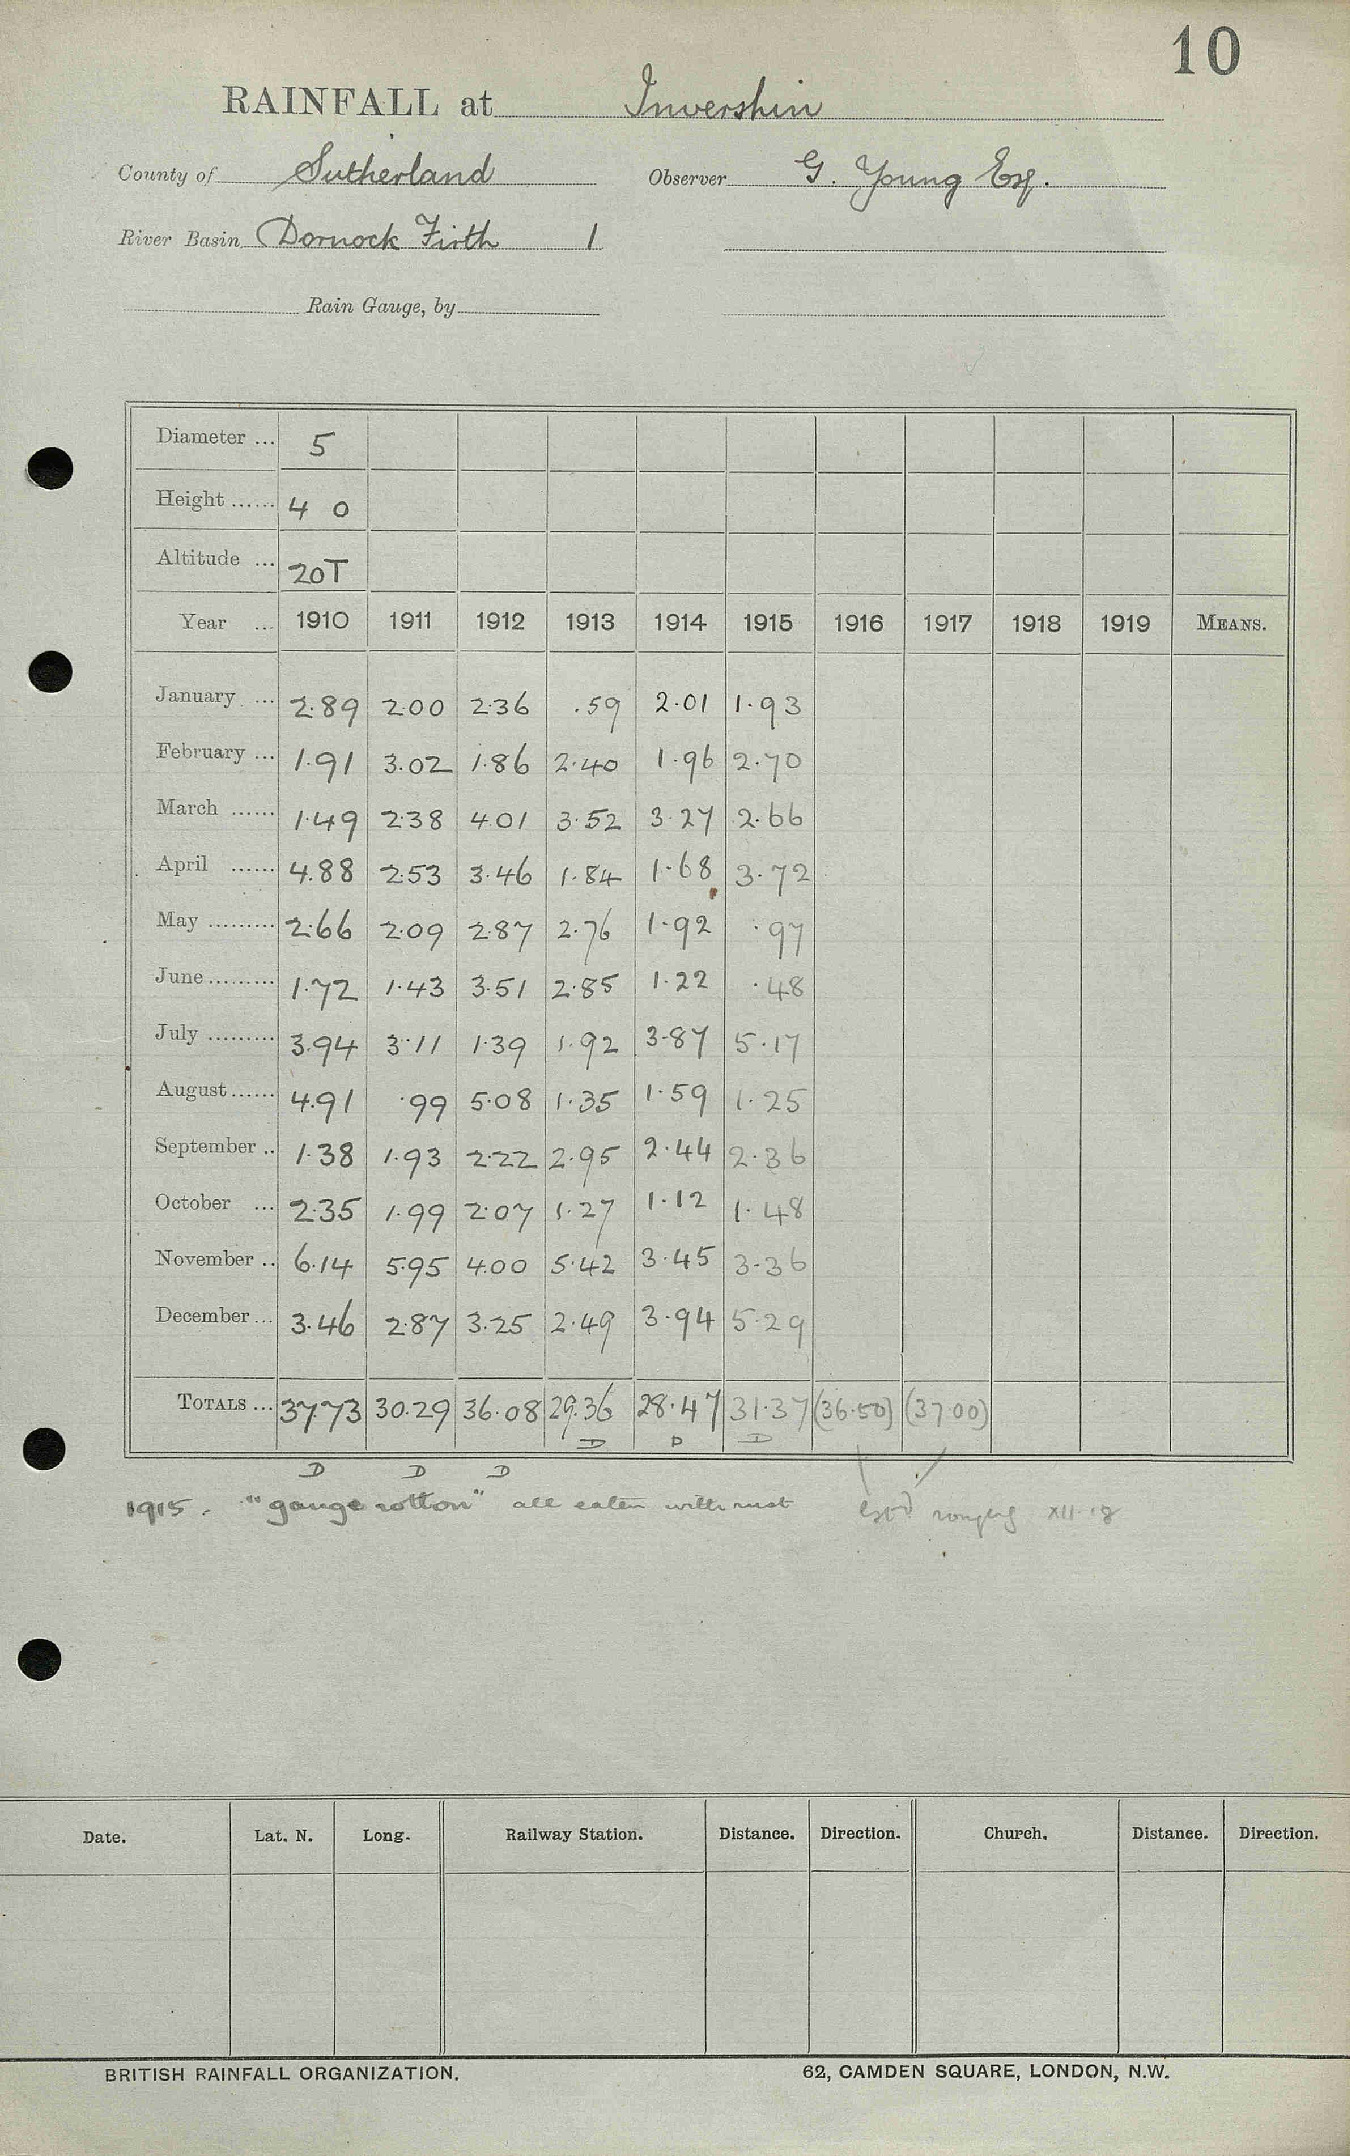 10
RAINFALL at Invershin
County of Sutherland Observer G. Young Esq.
River Basin Dornock Firth 1
Rain Gauge, by
Diameter ... 5
Height ...... 4 0
Altitude ... 20T
Year ... 1910 1911 1912 1913 1914 1915 1916 1917 1918 1919 MEANS.
January ... 2.89 2.00 2.36 .59 2.01 1.93
February ... 1.91 3.02 1.86 2.40 1.96 2.70
March ...... 1.49 2.38 4.01 3.52 3.27 2.66
April ...... 4.88 2.53 3.46 1.84 1.68 3.72
May ......... 2.66 2.09 2.87 2.76 1.92 .97
June ......... 1.72 1.43 3.51 2.85 1.22 .48
July ......... 3.94 3.11 1.39 1.92 3.87 5.17
August ...... 4.91 .99 5.08 1.35 1.59 1.25
September .. 1.38 1.93 2.22 2.95 2.44 2.36
October ... 2.35 1.99 2.07 1.27 1.12 1.48
November .. 6.14 5.95 4.00 5.42 3.45 3.36
December ... 3.46 2.87 3.25 2.49 3.94 5.29
TOTALS ... 37.73 30.29 36.08 29.36 28.47 31.37 (36.50) (37.00)
D D D
D D D
1915. "gauge rotton" all eaten with rust estd roughly XII.18
Date. Lat. N. Long. Railway Station. Distance. Direction. Church. Distance. Direction.
BRITISH RAINFALL ORGANIZATION. 62, CAMDEN SQUARE, LONDON, N.W.